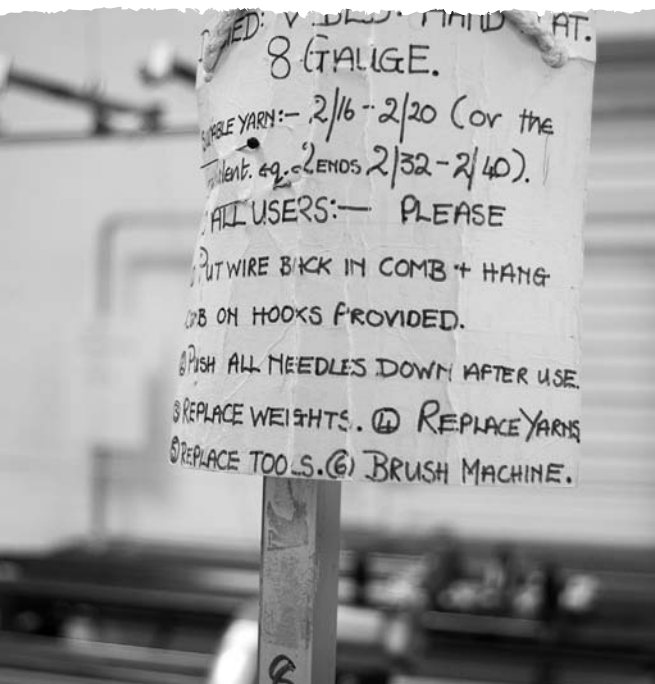 ED: V BED. HAND AT.
8 GAUGE.
ABLE YARN:- 2/16 - 2/20 (or the
lent. eg. 2 ENDS 2/32 - 2/40).
ALL USERS:- PLEASE
PUT WIRE BACK IN COMB + HANG
B ON HOOKS PROVIDED.
② PUSH ALL NEEDLES DOWN AFTER USE.
③ REPLACE WEIGHTS. ④ REPLACE YARNS
⑤ REPLACE TOOLS. (6) BRUSH MACHINE.
8